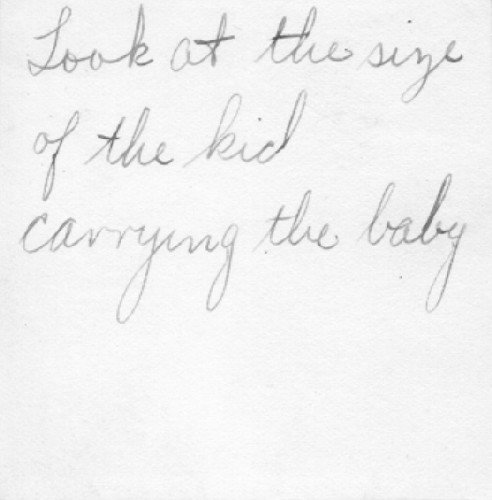 Look at the size
of the kid
carrying the baby